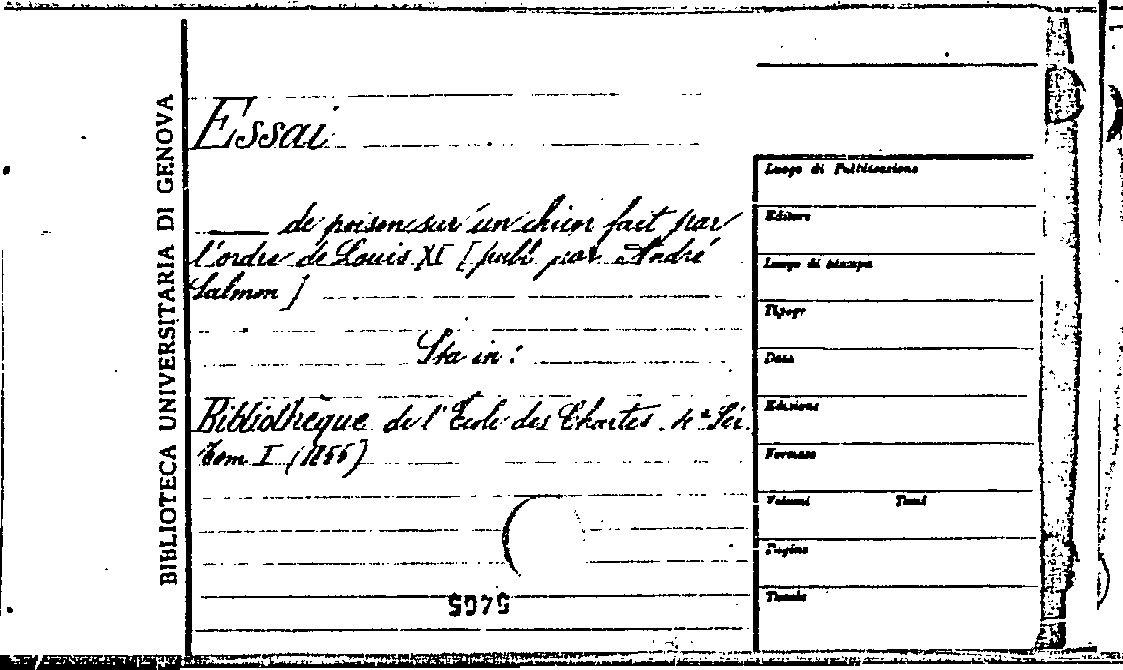 BIBLIOTECA UNIVERSITARIA DI GENOVA
Essai
___ de poison sur un chien fait par
l'ordre de Louis XI [publ par André
Salmon]
Sta in:
Bibliothèque de l'Ecole des Chartes. 4ª Sér.
Tom I (1855)
Luogo di Pubblicazione
Editore
Luogo di stampa
Tipogr
Data
Edizione
Formato
Volumi Tomi
Pagine
Tavole